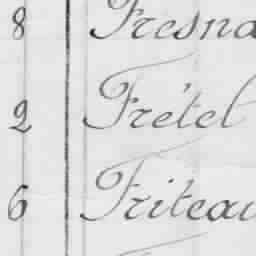 8 Fresna
2 Frétel
6 Friteau